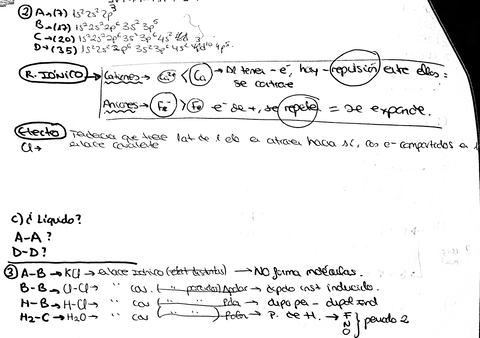 ② A→(7) 1s² 2s² 2p³
B→(17) 1s² 2s² 2p⁶ 3s² 3p⁵
C→(20) 1s² 2s² 2p⁶ 3s² 3p⁶ 4s²
D→(35) 1s² 2s² 2p⁶ 3s² 3p⁶ 4s² 4p⁵
R. IÓNICO → Cationes → Ca²⁺ Ca → Al tener - e⁻, hay - repulsión entre ellos =
se contrae
Aniones → Fe⁻ > Fe e⁻ se +, se repelen = se expande.
Efecto Tendencia que tiene 1 at de 1 ele a atraer hacia sí, los e⁻ compartidos
Cl → enlace covalente
C) ¿Líquido?
A-A?
D-D?
③ A-B → KCl → enlace iónico → NO forma moléculas.
B-B → Cl-Cl → " cov. Apolar → dipolo inst inducido.
H-B → H-Cl → " cov " " Polar → dipo per - dipol
H₂-C → H₂O → " cov " " Polar → P. de H. → F N O } periodo 2